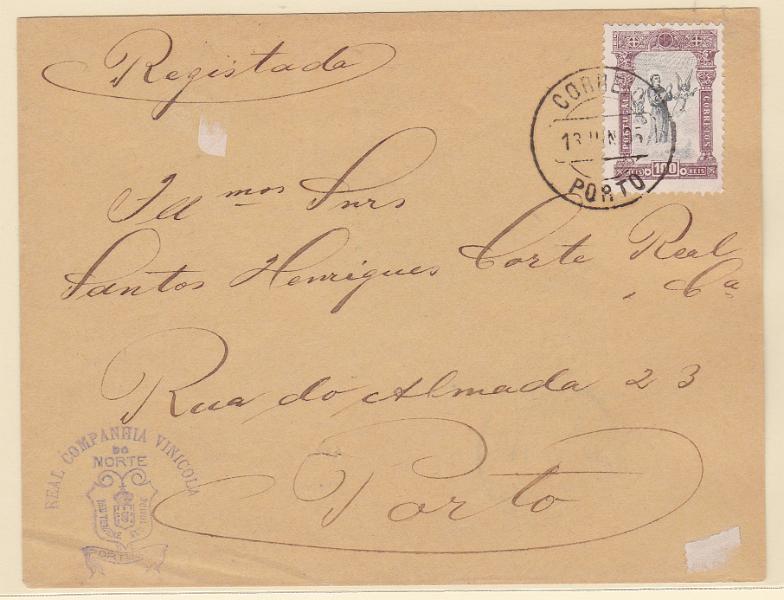 Registada
CORREIO
13 JUN 95
PORTO
PORTUGAL
CORREIOS
REIS 100 REIS
mos Snrs
Santos Henriques Corte Real
& Ca
Rua do Almada 23
Porto
REAL COMPANHIA VINICOLA
DO
NORTE
PORTUGAL